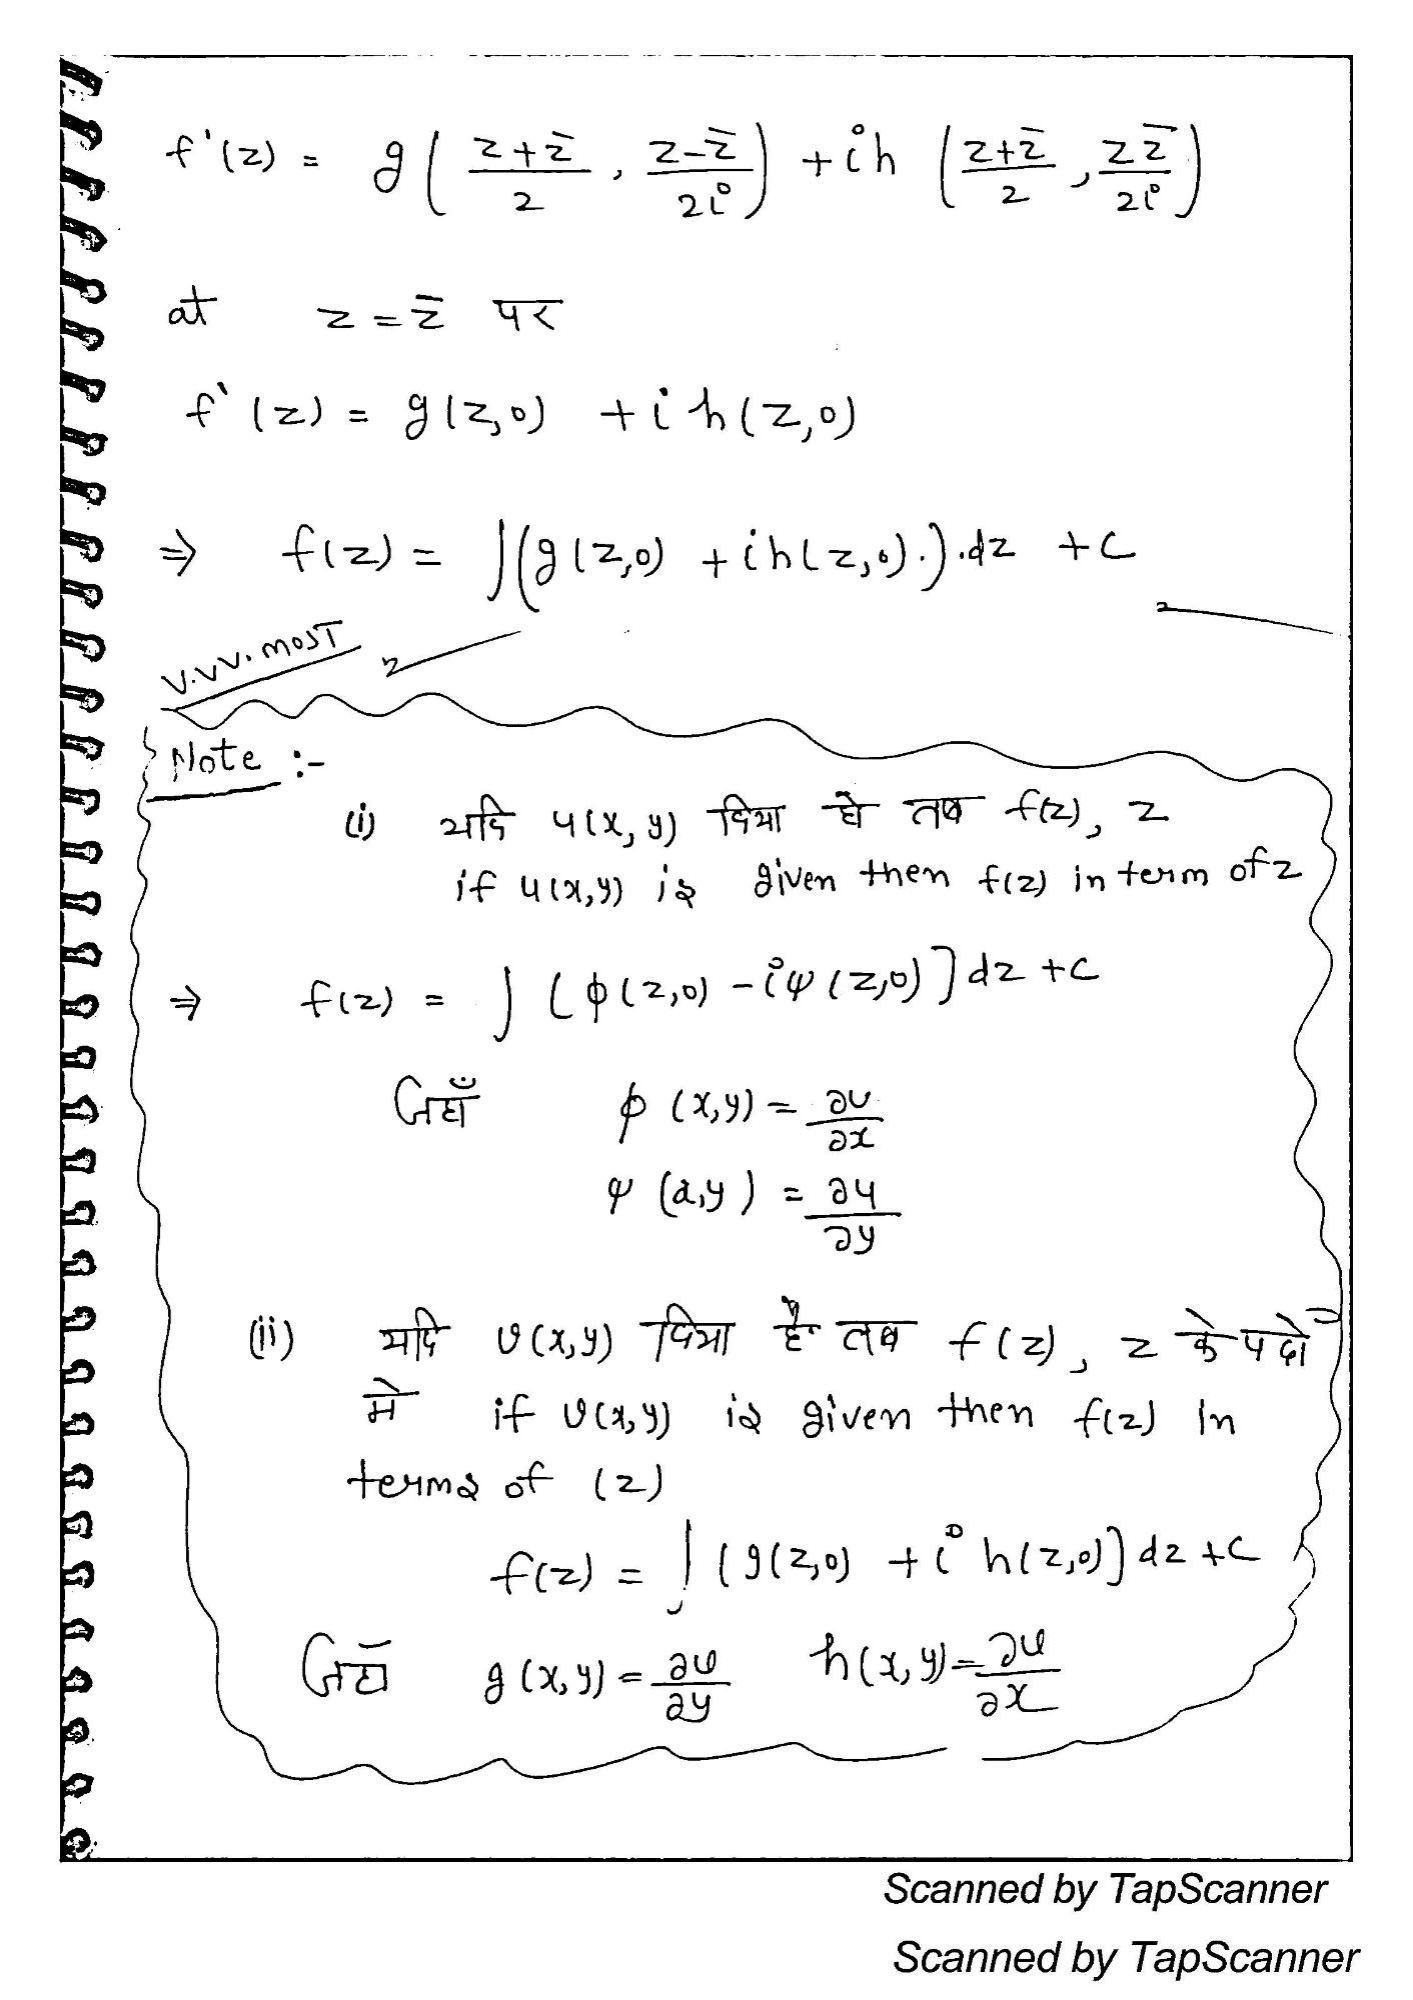 f'(z) = g( (z+z̄)/2 , (z-z̄)/2i ) + ih ( (z+z̄)/2 , (z z̄)/2i )
at z = z̄ पर
f'(z) = g(z,0) + i h(z,0)
⇒ f(z) = ∫(g(z,0) + ih(z,0).).dz + c
V.V.V. MOST
Note :-
(i) यदि u(x,y) दिया है तब f(z), z
if u(x,y) is given then f(z) in term of z
⇒ f(z) = ∫ [ϕ(z,0) - iψ(z,0)] dz + c
जहाँ ϕ (x,y) = ∂u/∂x
ψ (x,y) = ∂u/∂y
(ii) यदि v(x,y) दिया है तब f(z), z के पदो
मे if v(x,y) is given then f(z) in
terms of (z)
f(z) = ∫ [g(z,0) + i h(z,0)] dz + c
जहाँ g(x,y) = ∂v/∂y h(x,y) = ∂v/∂x
Scanned by TapScanner
Scanned by TapScanner